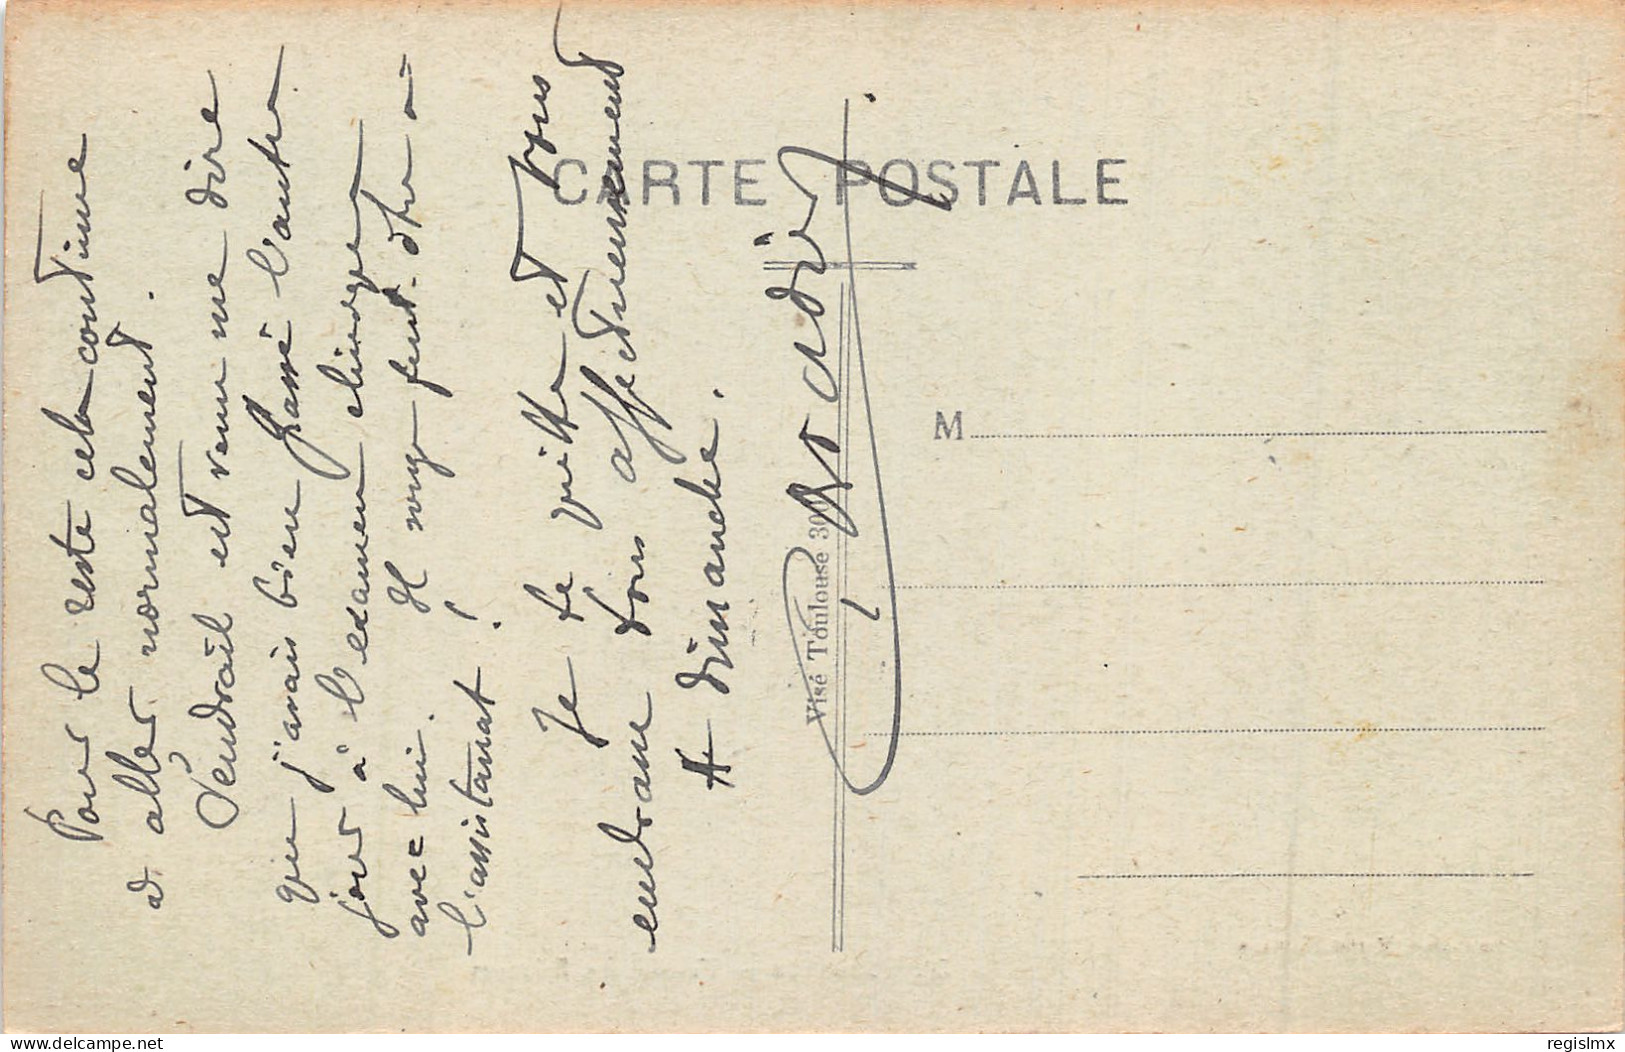 Pour le reste cela continue
à aller normalement.
Sendrail est venu me dire
que j'avais bien passé l'autre
jour à l'examen
avec lui. Il songe peut-être à
l'assistanat !
Je te quitte et vous
embrasse tous affectueusement
A dimanche.
CARTE POSTALE
M
Visé Toulouse 30
delcampe.net
regislmx